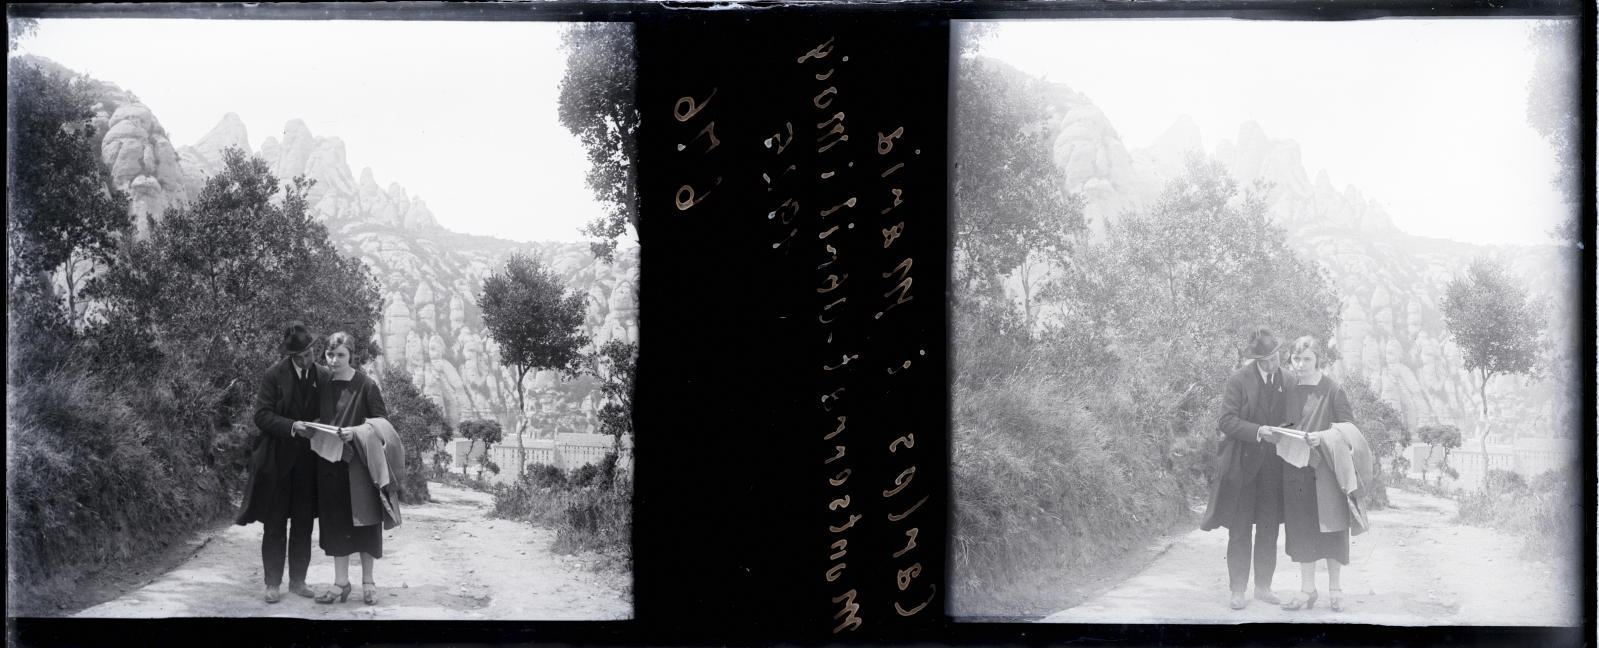 Carles i Maria
Montserrat-abril i maig
1925
626